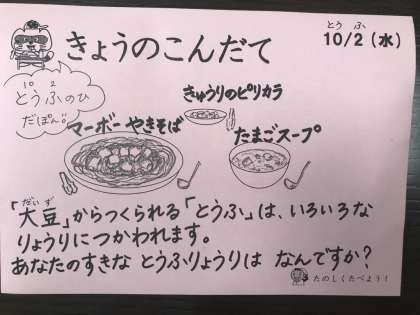 きょうのこんだて
とう ふ
10/2（水）
10 2
とうふのひ
だぽん!!
きゅうりのピリカラ
マーボーやきそば
たまごスープ
だいず
「大豆」からつくられる「とうふ」は、いろいろな
りょうりにつかわれます。
あなたのすきな とうふりょうりは なんですか？
たのしくたべよう！